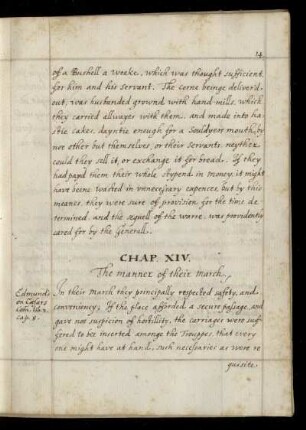 14
of a Bushell a weeke, which was thought sufficient
for him and his servant. The corne beinge deliver'd
out, was husbanded grownd with hand-mills, which
they carried allwayes with them, and made into ha=
stie cakes, dayntie enough for a Souldyers mouth, by
nor other but themselves, or their servants, neyther
could they sell it, or exchange it for bread. If they
had payd them their whole stypend in money, it might
have beene wasted in unnecessary expences, but by this
meanes, they were sure of provision, for the time de=
termined, and the sequell of the warre, was providently
cared for by the Generall.
CHAP. XIV.
The manner of their march.
Edmunds
on Cæsars
Com. lib. 2.
cap. 8.
In their march they principally respected safety, and
conveniency, If the place afforded a secure passage, and
gave not suspicion of hostillity, the carriages were suf=
fered to be inserted amonge the Trouppes, that every
one might have at hand, such necessaries as were re
quisite.